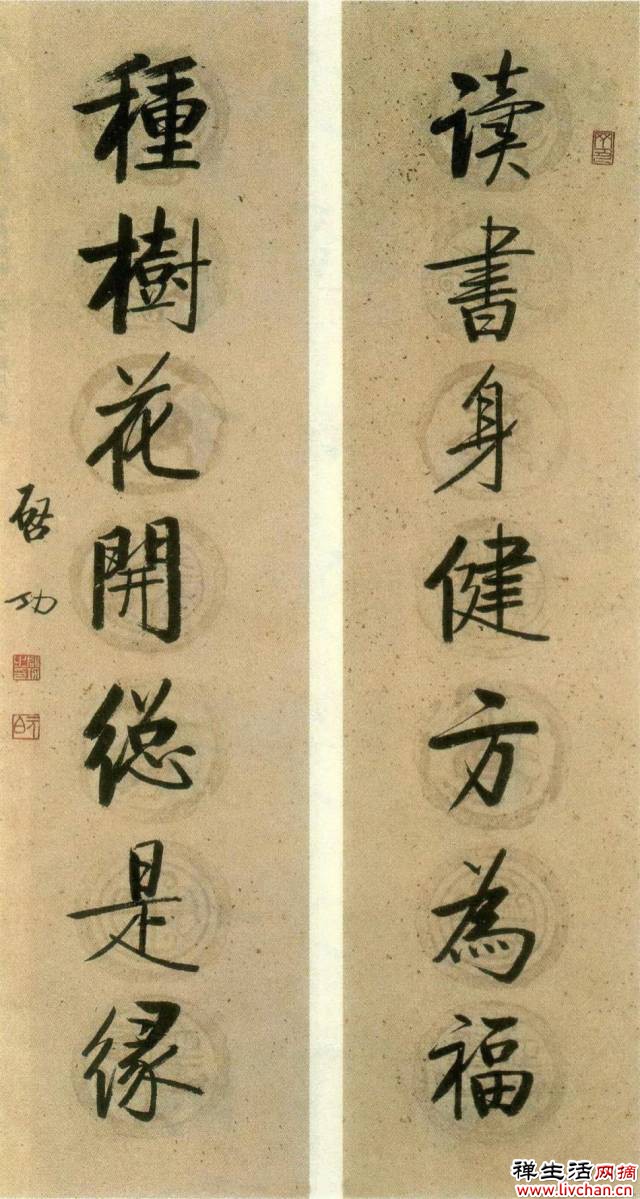 读書身健方為福
種樹花開緫是緣
啓功
禅生活网摘
www.livchan.cn